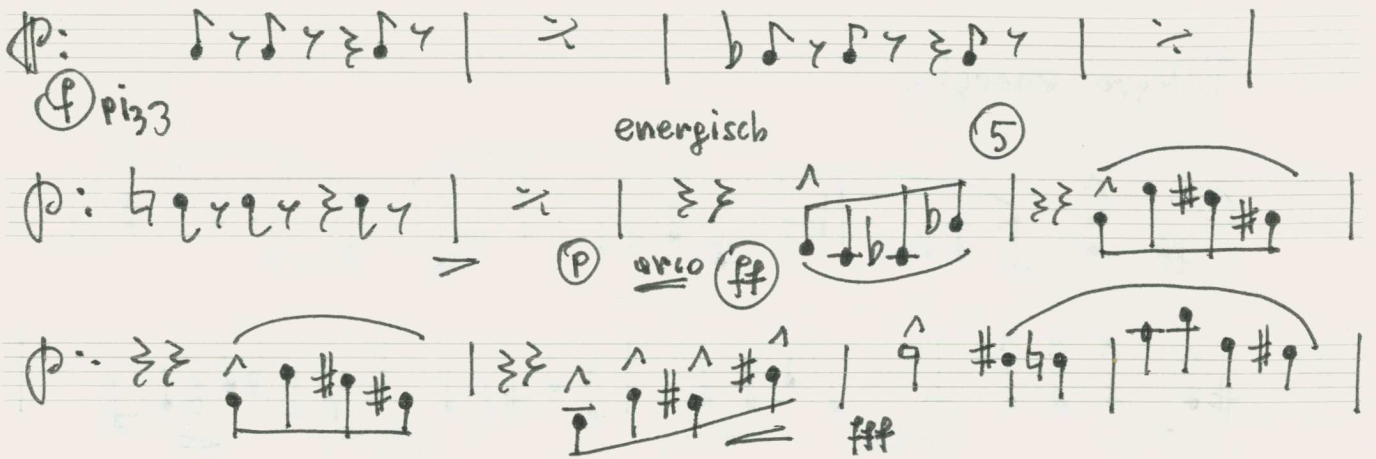 f pizz
energisch 5
p arco ff
fff